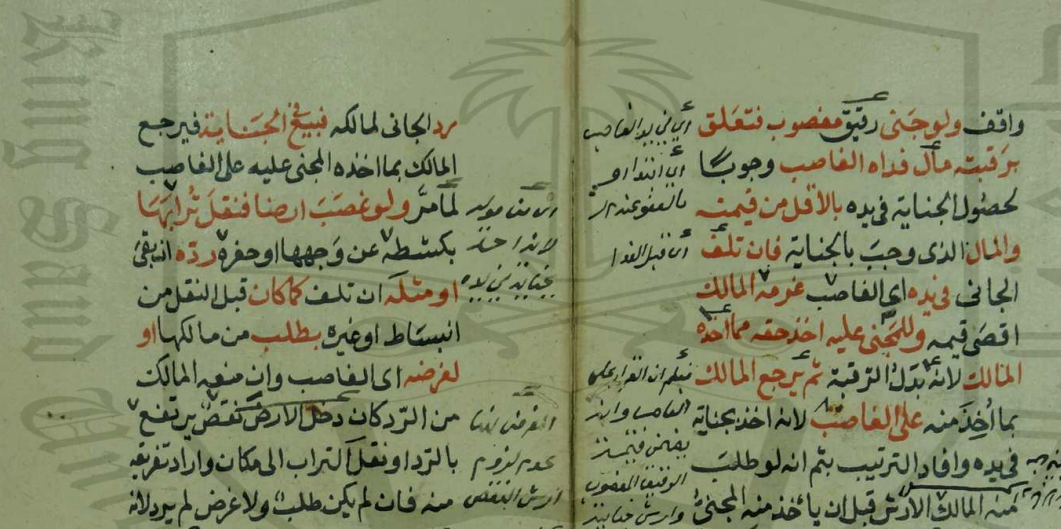 واقف ولو جنى رقيق مغصوب فتعلق
برقبته مال فداه الغاصب وجوبا
لحصول الجناية في يده بالاقل من قيمته
والمال الذى وجب بالجناية فان تلف
الجانى في يده اى الغاصب غرمه المالك
اقصى قيمه وللمجنى عليه اخذ حقه مما اخذه
المالك لانه بدل الرقبة ثم يرجع المالك
بما اخذ منه على الغاصب لانه اخذ بجناية
في يده وافاد الترتيب بثم انه لو طلب
منه المالك الارش قبل ان ياخذ منه المجنى
اى في يد الغاصب
اى قبل الفدا
رد الجانى لمالكه فبيع في الجناية فيرجع
المالك بما اخذه المجنى عليه على الغاصب
لما مر ولو غصب ارضا فنقل ترابها
بكشطه عن وجهها او حفره رده ان بقى
او مثله ان تلف كما كان قبل النقل من
انبساط او غيره بطلب من مالكها او
لغرضه اى الغاصب وان منعه المالك
من الرد كان دخل الارض نقص يرتفع
بالرد او نقل التراب الى مكان واراد تفريغه
منه فان لم يكن طلب ولا غرض لم يرد لانه
عدم لزوم
ارش النقص